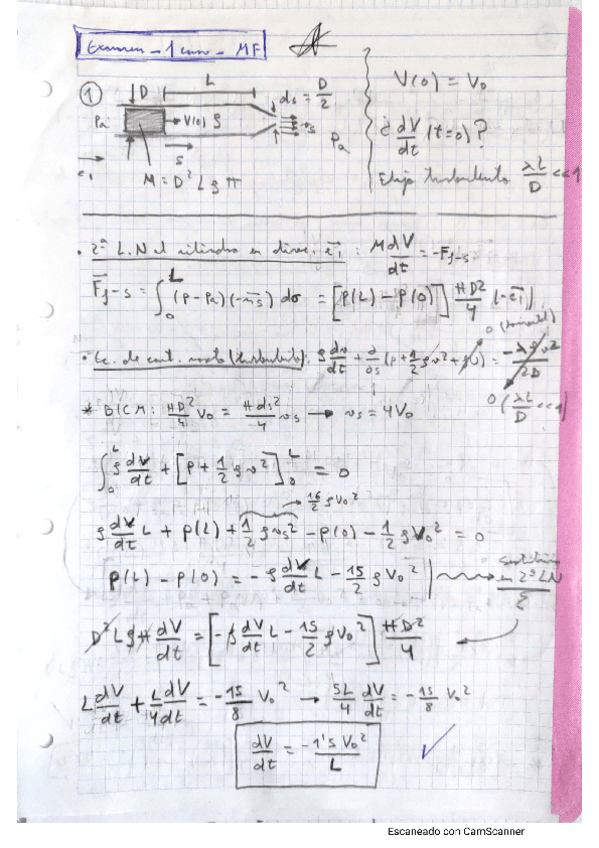 Examen - 1 - MF
① D L ds = D/2
Pa V(0) ρ Vs Pa
s
M = D² L ρ π
V(0) = V₀
¿ dV/dt (t=0) ?
Flujo turbulento λL/D << 1
• 2ª L.N al cilindro en direc. e⃗₁ : M dV/dt = -F_f-s
F⃗_f-s = ∫₀ᴸ (P - Pa)(-n⃗s) dσ = [P(L) - P(0)] πD²/4 (-e⃗₁)
• Ec. de cant. movto (turbulento): ρ dv/dt + ∂/∂s (P + 1/2 ρv² + ρU) = -λρv²/2D
0 (λL/D << 1)
* BICM: πD²/4 V₀ = πds²/4 vs → vs = 4V₀
∫₀ᴸ ρ dV/dt + [P + 1/2 ρv²]₀ᴸ = 0
→ 16/2 ρV₀²
ρ dV/dt L + P(L) + 1/2 ρvs² - P(0) - 1/2 ρV₀² = 0
P(L) - P(0) = -ρ dV/dt L - 15/2 ρV₀²
en 2ª LN
D² L ρ π dV/dt = [-ρ dV/dt L - 15/2 ρV₀²] πD²/4
L dV/dt + L/4 dV/dt = -15/8 V₀² → 5L/4 dV/dt = -15/8 V₀²
dV/dt = -1'5 V₀²/L
Escaneado con CamScanner